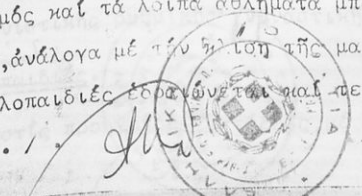 μός καί τά λοιπά ἀθλήματα μπ
,ἀνάλογα μέ τήν κλίση τῆς μα
λοπαιδιές ἑδραιώνεται καί τε
. / .